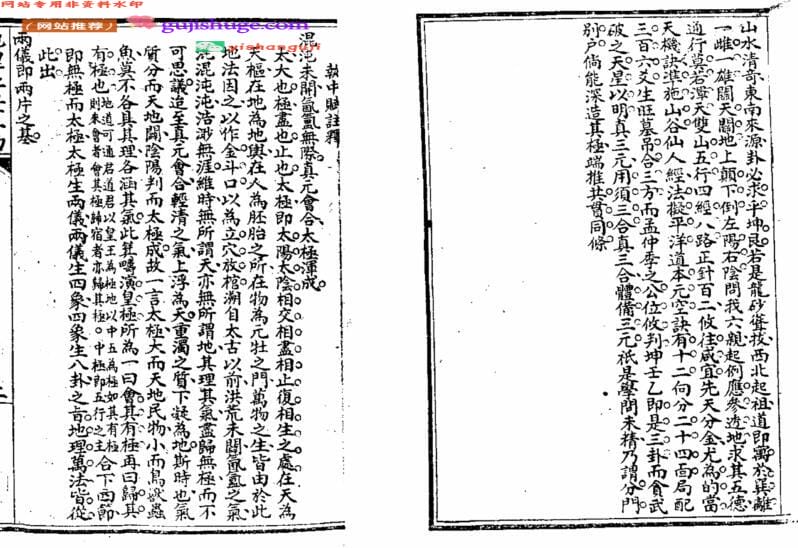 网站专用非资料水印
(网站推荐)
gujishuge.com
yishanguji
山水清奇東南來源卦必求乎坤艮若是龍砂聳拔西北起祖道即寓於巽離
一雌一雄闔天關地上顛下倒左陽右陰問我六親起例應參透地求其五德
道行莫若渾天雙山五行四經八路正針百二攸往咸宜先天分金尤為的當
天機訣準施山谷仙人經法擬平洋道本元空訣有十二向分二十四局配
三百六爻生旺墓吊合三方而孟仲季之公位攸判坤壬乙即是三卦而貪武
破之天星以明真三元用須三合真三合體備三元祇是學問未精乃謂分門
別戶倘能深造其極端推共貫同條
執中賦註釋
混沌未開氤氳無際真元會合太極渾成
太大也極盡也止也太極即太陽太陰相交相盡相止復相生之處在天為
天樞在地為地輿在人為胚胎之所在物為元牡之門萬物之生皆由於此
地法因之以作金斗口以為立穴放棺溯自太古以前洪荒未闢氤氳之氣
混混沌沌浩渺無涯維時無所謂天亦無所謂地其理其氣盡歸無極而不
可思議迨至真元會合輕清之氣上浮為天重濁之質下凝為地斯時也氣
質分而天地闢陰陽判而太極成故一言太極大而天地民物小而鳥獸蟲
魚莫不各具其理各涵其氣此箕疇演皇極所為一曰會其有極再曰歸其
有極也地道可通君道君以皇王為極地以中五為極如其有極也則來會者會其極歸宿者亦歸其極中極即五行之主合下西節
即無極而太極太極生兩儀兩儀生四象四象生八卦之旨地理萬法皆從
此出
兩儀即兩片之基